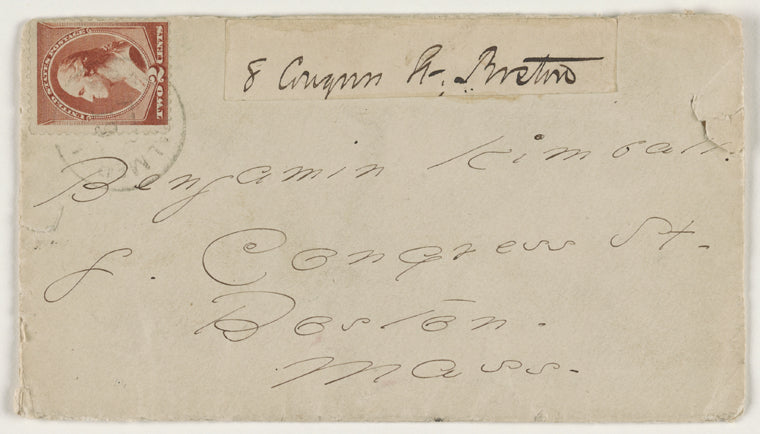 UNITED STATES POSTAGE
TWO 2 CENTS
8 Congress St. Boston
Benjamin Kimball.
8. Congress St.
Boston.
Mass.